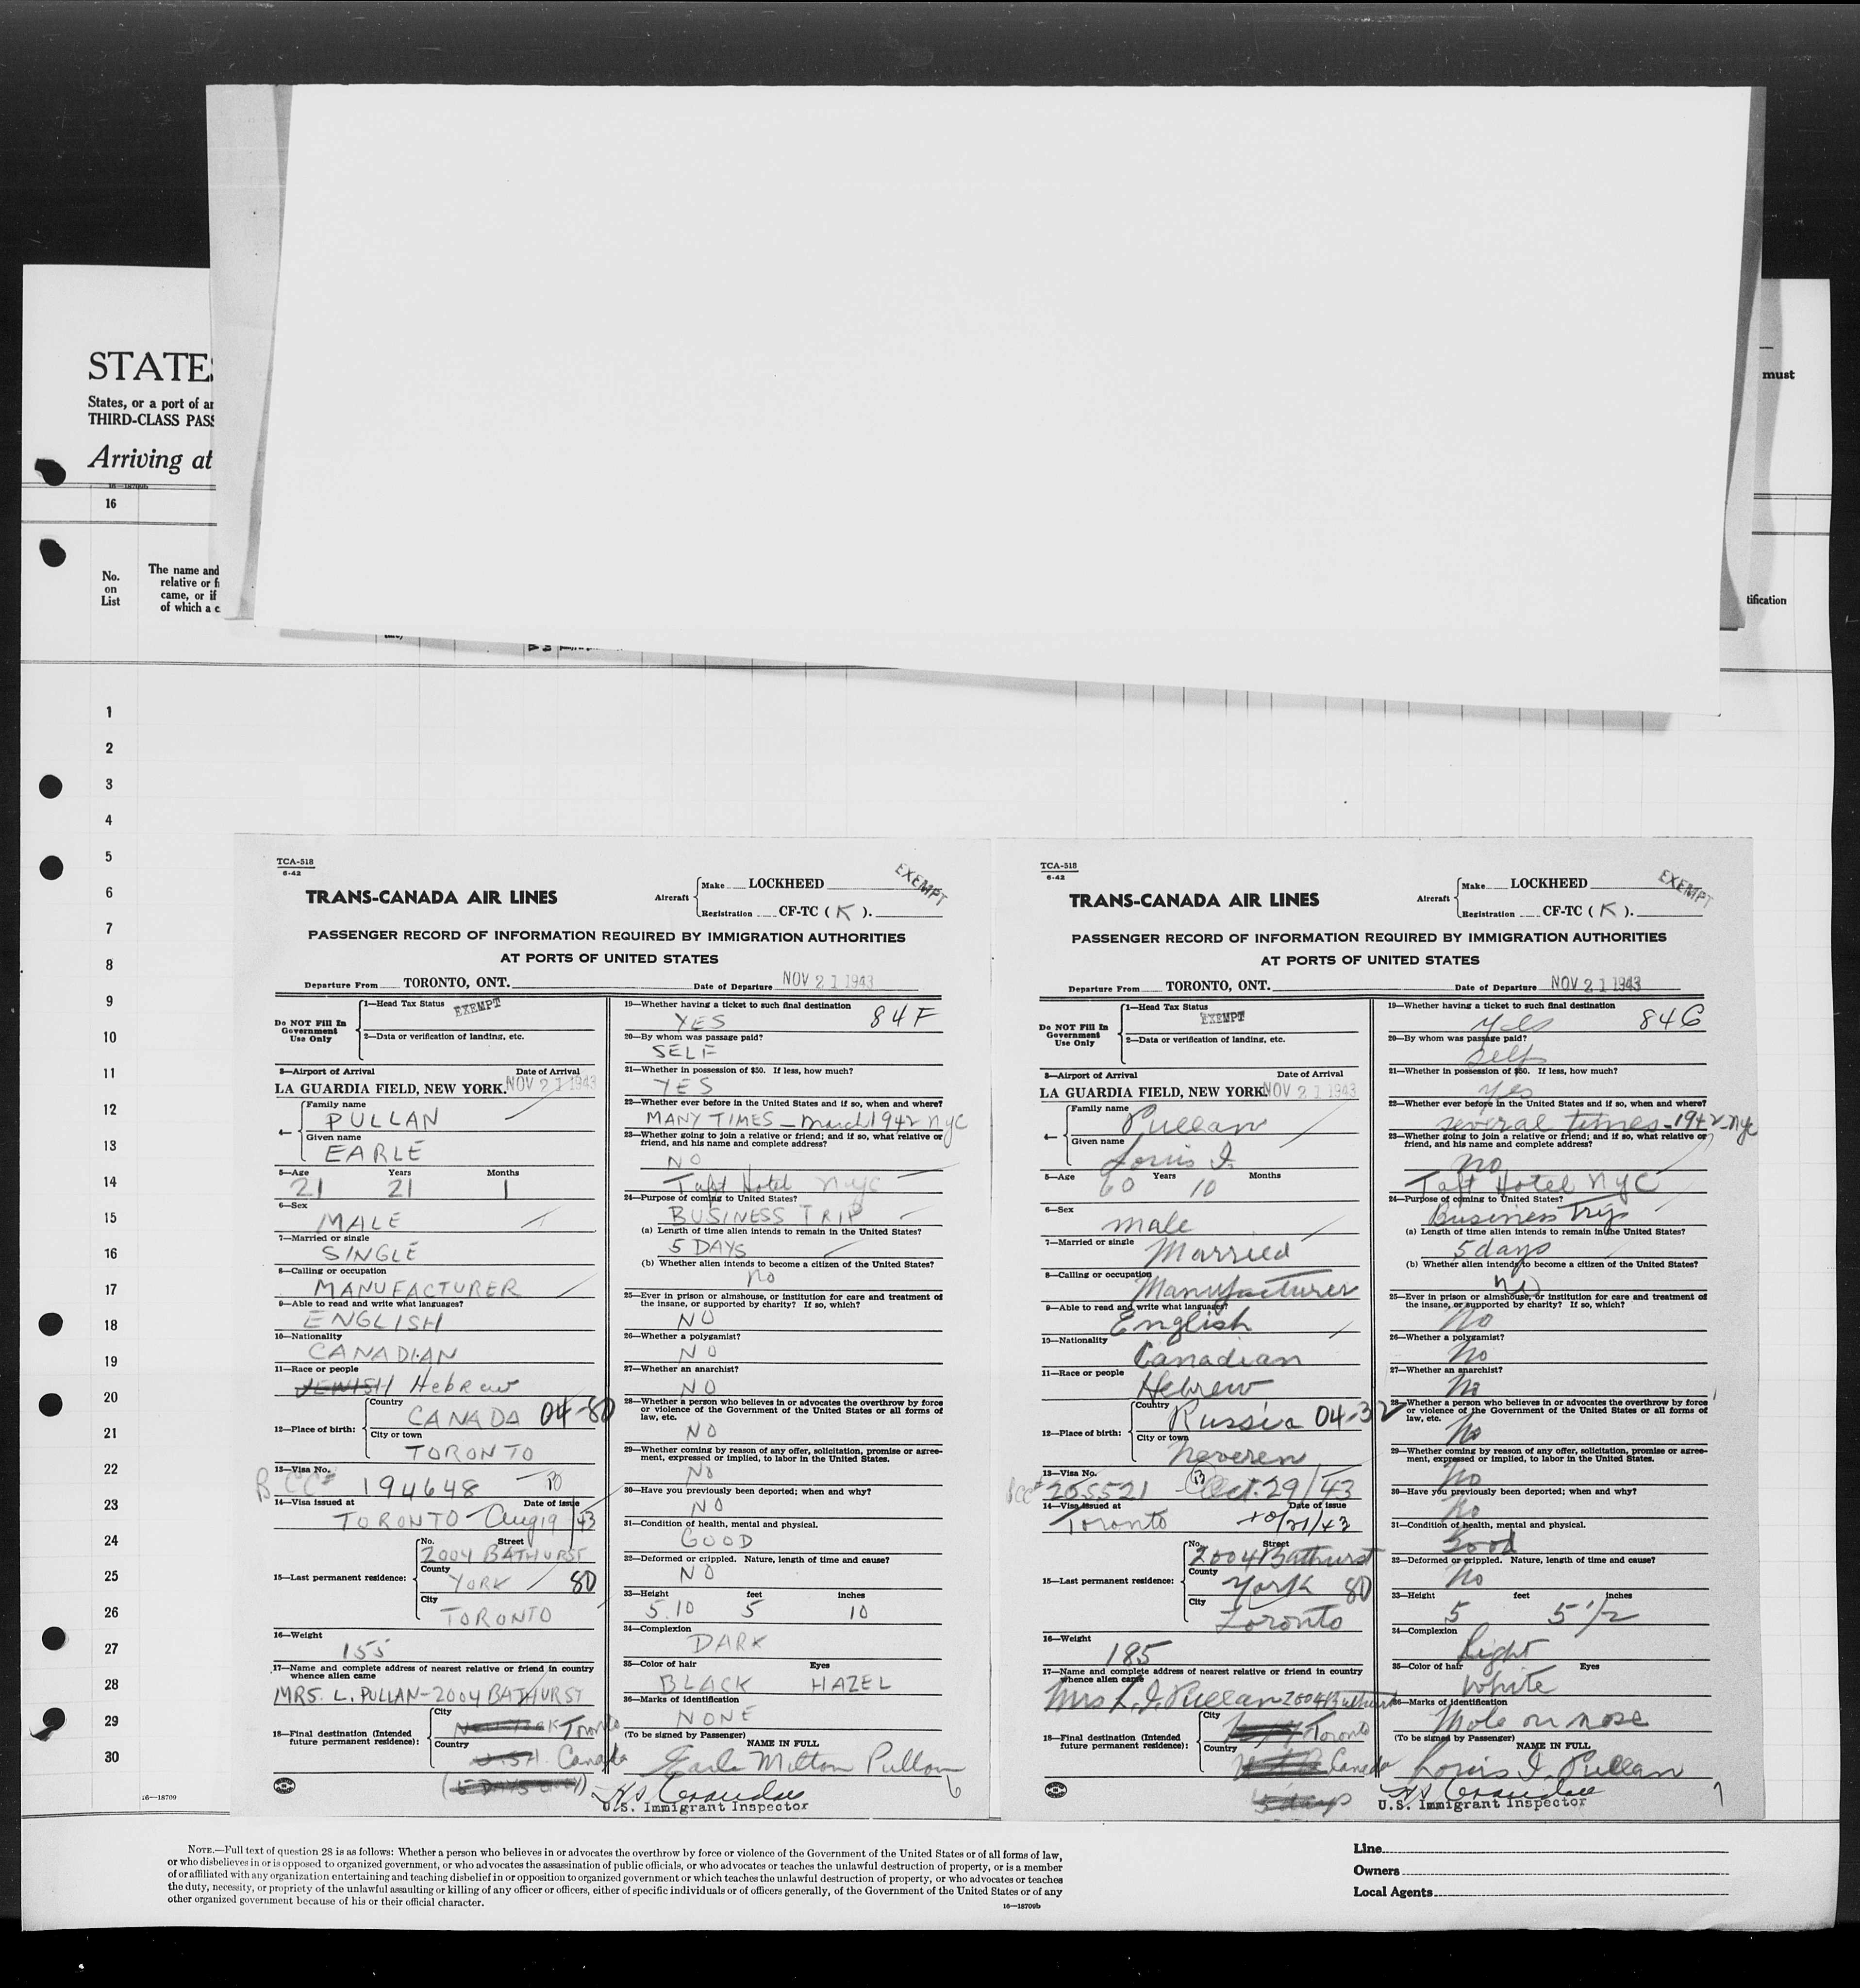 STATES
must
States, or a port of
THIRD-CLASS PASS
Arriving at
16—18709b
16
No.
on
List
The name and
relative or
came, or if
of which a
tification
1
2
3
4
5
6
7
8
9
10
11
12
13
14
15
16
17
18
19
20
21
22
23
24
25
26
27
28
29
30
16—18709
TCA-518
6-42
TRANS-CANADA AIR LINES
Aircraft
Make LOCKHEED
Registration CF-TC ( K ).
EXEMPT
PASSENGER RECORD OF INFORMATION REQUIRED BY IMMIGRATION AUTHORITIES
AT PORTS OF UNITED STATES
Departure From TORONTO, ONT.
Date of Departure NOV 21 1943
Do NOT Fill In
Government
Use Only
1—Head Tax Status
EXEMPT
2—Data or verification of landing, etc.
3—Airport of Arrival Date of Arrival
LA GUARDIA FIELD, NEW YORK. NOV 21 1943
4—
Family name
PULLAN
Given name
EARLE
5—Age Years Months
21 21 1
6—Sex
MALE
7—Married or single
SINGLE
8—Calling or occupation
MANUFACTURER
9—Able to read and write what languages?
ENGLISH
10—Nationality
CANADIAN
11—Race or people
JEWISH Hebrew
12—Place of birth:
Country
CANADA 04-80
City or town
TORONTO
13—Visa No.
B CC# 194648 B
14—Visa issued at Date of issue
TORONTO - Aug 19/43
15—Last permanent residence:
No. Street
2004 BATHURST
County
YORK 80
City
TORONTO
16—Weight
155
17—Name and complete address of nearest relative or friend in country
whence alien came
MRS. L. PULLAN-2004 BATHURST
18—Final destination (Intended
future permanent residence):
City
NEW YORK Toronto
Country
U.S.A. Canada
(5 DAYS ONLY)
19—Whether having a ticket to such final destination
YES 84F
20—By whom was passage paid?
SELF
21—Whether in possession of $50. If less, how much?
YES
22—Whether ever before in the United States and if so, when and where?
MANY TIMES - March 1942 NYC
23—Whether going to join a relative or friend; and if so, what relative or
friend, and his name and complete address?
NO
Taft Hotel NYC
24—Purpose of coming to United States?
BUSINESS TRIP
(a) Length of time alien intends to remain in the United States?
5 DAYS
(b) Whether alien intends to become a citizen of the United States?
no
25—Ever in prison or almshouse, or institution for care and treatment of
the insane, or supported by charity? If so, which?
NO
26—Whether a polygamist?
NO
27—Whether an anarchist?
NO
28—Whether a person who believes in or advocates the overthrow by force
or violence of the Government of the United States or all forms of
law, etc.
NO
29—Whether coming by reason of any offer, solicitation, promise or agree-
ment, expressed or implied, to labor in the United States.
NO
30—Have you previously been deported; when and why?
NO
31—Condition of health, mental and physical.
GOOD
32—Deformed or crippled. Nature, length of time and cause?
NO
33—Height feet inches
5.10 5 10
34—Complexion
DARK
35—Color of hair Eyes
BLACK HAZEL
36—Marks of identification
NONE
(To be signed by Passenger)
NAME IN FULL
Earle Milton Pullan
6
U.S. Immigrant Inspector
TCA-518
6-42
TRANS-CANADA AIR LINES
Aircraft
Make LOCKHEED
Registration CF-TC ( K ).
EXEMPT
PASSENGER RECORD OF INFORMATION REQUIRED BY IMMIGRATION AUTHORITIES
AT PORTS OF UNITED STATES
Departure From TORONTO, ONT.
Date of Departure NOV 21 1943
Do NOT Fill In
Government
Use Only
1—Head Tax Status
EXEMPT
2—Data or verification of landing, etc.
3—Airport of Arrival Date of Arrival
LA GUARDIA FIELD, NEW YORK. NOV 21 1943
4—
Family name
Pullan
Given name
Louis I.
5—Age Years Months
60 10
6—Sex
male
7—Married or single
Married
8—Calling or occupation
Manufacturer
9—Able to read and write what languages?
English
10—Nationality
Canadian
11—Race or people
Hebrew
12—Place of birth:
Country
Russia 04-32
City or town
Neveren
13—Visa No.
BCC# 205521 B Oct. 29/43
14—Visa issued at Date of issue
Toronto 10/21/43
15—Last permanent residence:
No. Street
2004 Bathurst
County
York 80
City
Toronto
16—Weight
185
17—Name and complete address of nearest relative or friend in country
whence alien came
Mrs L. I. Pullan 2004 Bathurst
18—Final destination (Intended
future permanent residence):
City
Toronto
Country
Canada
5 days
19—Whether having a ticket to such final destination
yes 84G
20—By whom was passage paid?
self
21—Whether in possession of $50. If less, how much?
yes
22—Whether ever before in the United States and if so, when and where?
several times - 1942 - nyc
23—Whether going to join a relative or friend; and if so, what relative or
friend, and his name and complete address?
no
Taft Hotel NYC
24—Purpose of coming to United States?
Business Trip
(a) Length of time alien intends to remain in the United States?
5 days
(b) Whether alien intends to become a citizen of the United States?
no
25—Ever in prison or almshouse, or institution for care and treatment of
the insane, or supported by charity? If so, which?
No
26—Whether a polygamist?
No
27—Whether an anarchist?
No
28—Whether a person who believes in or advocates the overthrow by force
or violence of the Government of the United States or all forms of
law, etc.
No
29—Whether coming by reason of any offer, solicitation, promise or agree-
ment, expressed or implied, to labor in the United States.
No
30—Have you previously been deported; when and why?
No
31—Condition of health, mental and physical.
Good
32—Deformed or crippled. Nature, length of time and cause?
No
33—Height feet inches
5 5 1/2
34—Complexion
Light
35—Color of hair Eyes
White
36—Marks of identification
Mole on nose
(To be signed by Passenger)
NAME IN FULL
Louis I. Pullan
7
U.S. Immigrant Inspector
NOTE.—Full text of question 28 is as follows: Whether a person who believes in or advocates the overthrow by force or violence of the Government of the United States or of all forms of law,
or who disbelieves in or is opposed to organized government, or who advocates the assassination of public officials, or who advocates or teaches the unlawful destruction of property, or is a member
of or affiliated with any organization entertaining and teaching disbelief in or opposition to organized government or which teaches the unlawful destruction of property, or who advocates or teaches
the duty, necessity, or propriety of the unlawful assaulting or killing of any officer or officers, either of specific individuals or of officers generally, of the Government of the United States or of any
other organized government because of his or their official character.
16—18709b
Line
Owners
Local Agents